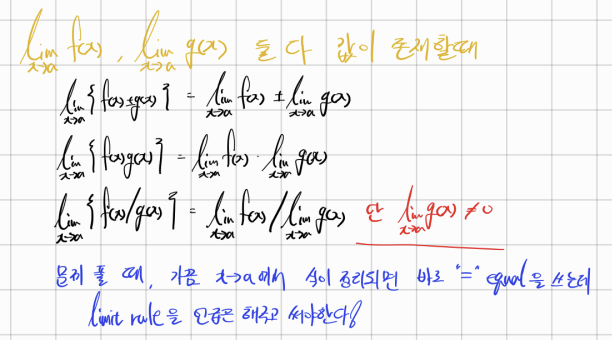 lim x→a f(x), lim x→a g(x) 둘 다 값이 존재할때
lim x→a {f(x)±g(x)} = lim x→a f(x) ± lim x→a g(x)
lim x→a {f(x)g(x)} = lim x→a f(x) · lim x→a g(x)
lim x→a {f(x)/g(x)} = lim x→a f(x) / lim x→a g(x) 단 lim x→a g(x) ≠ 0
문제 풀 때, 가끔 x→a에서 식이 정리되면 바로 "=" equal을 쓰는데
limit rule을 언급은 해주고 써야한다!